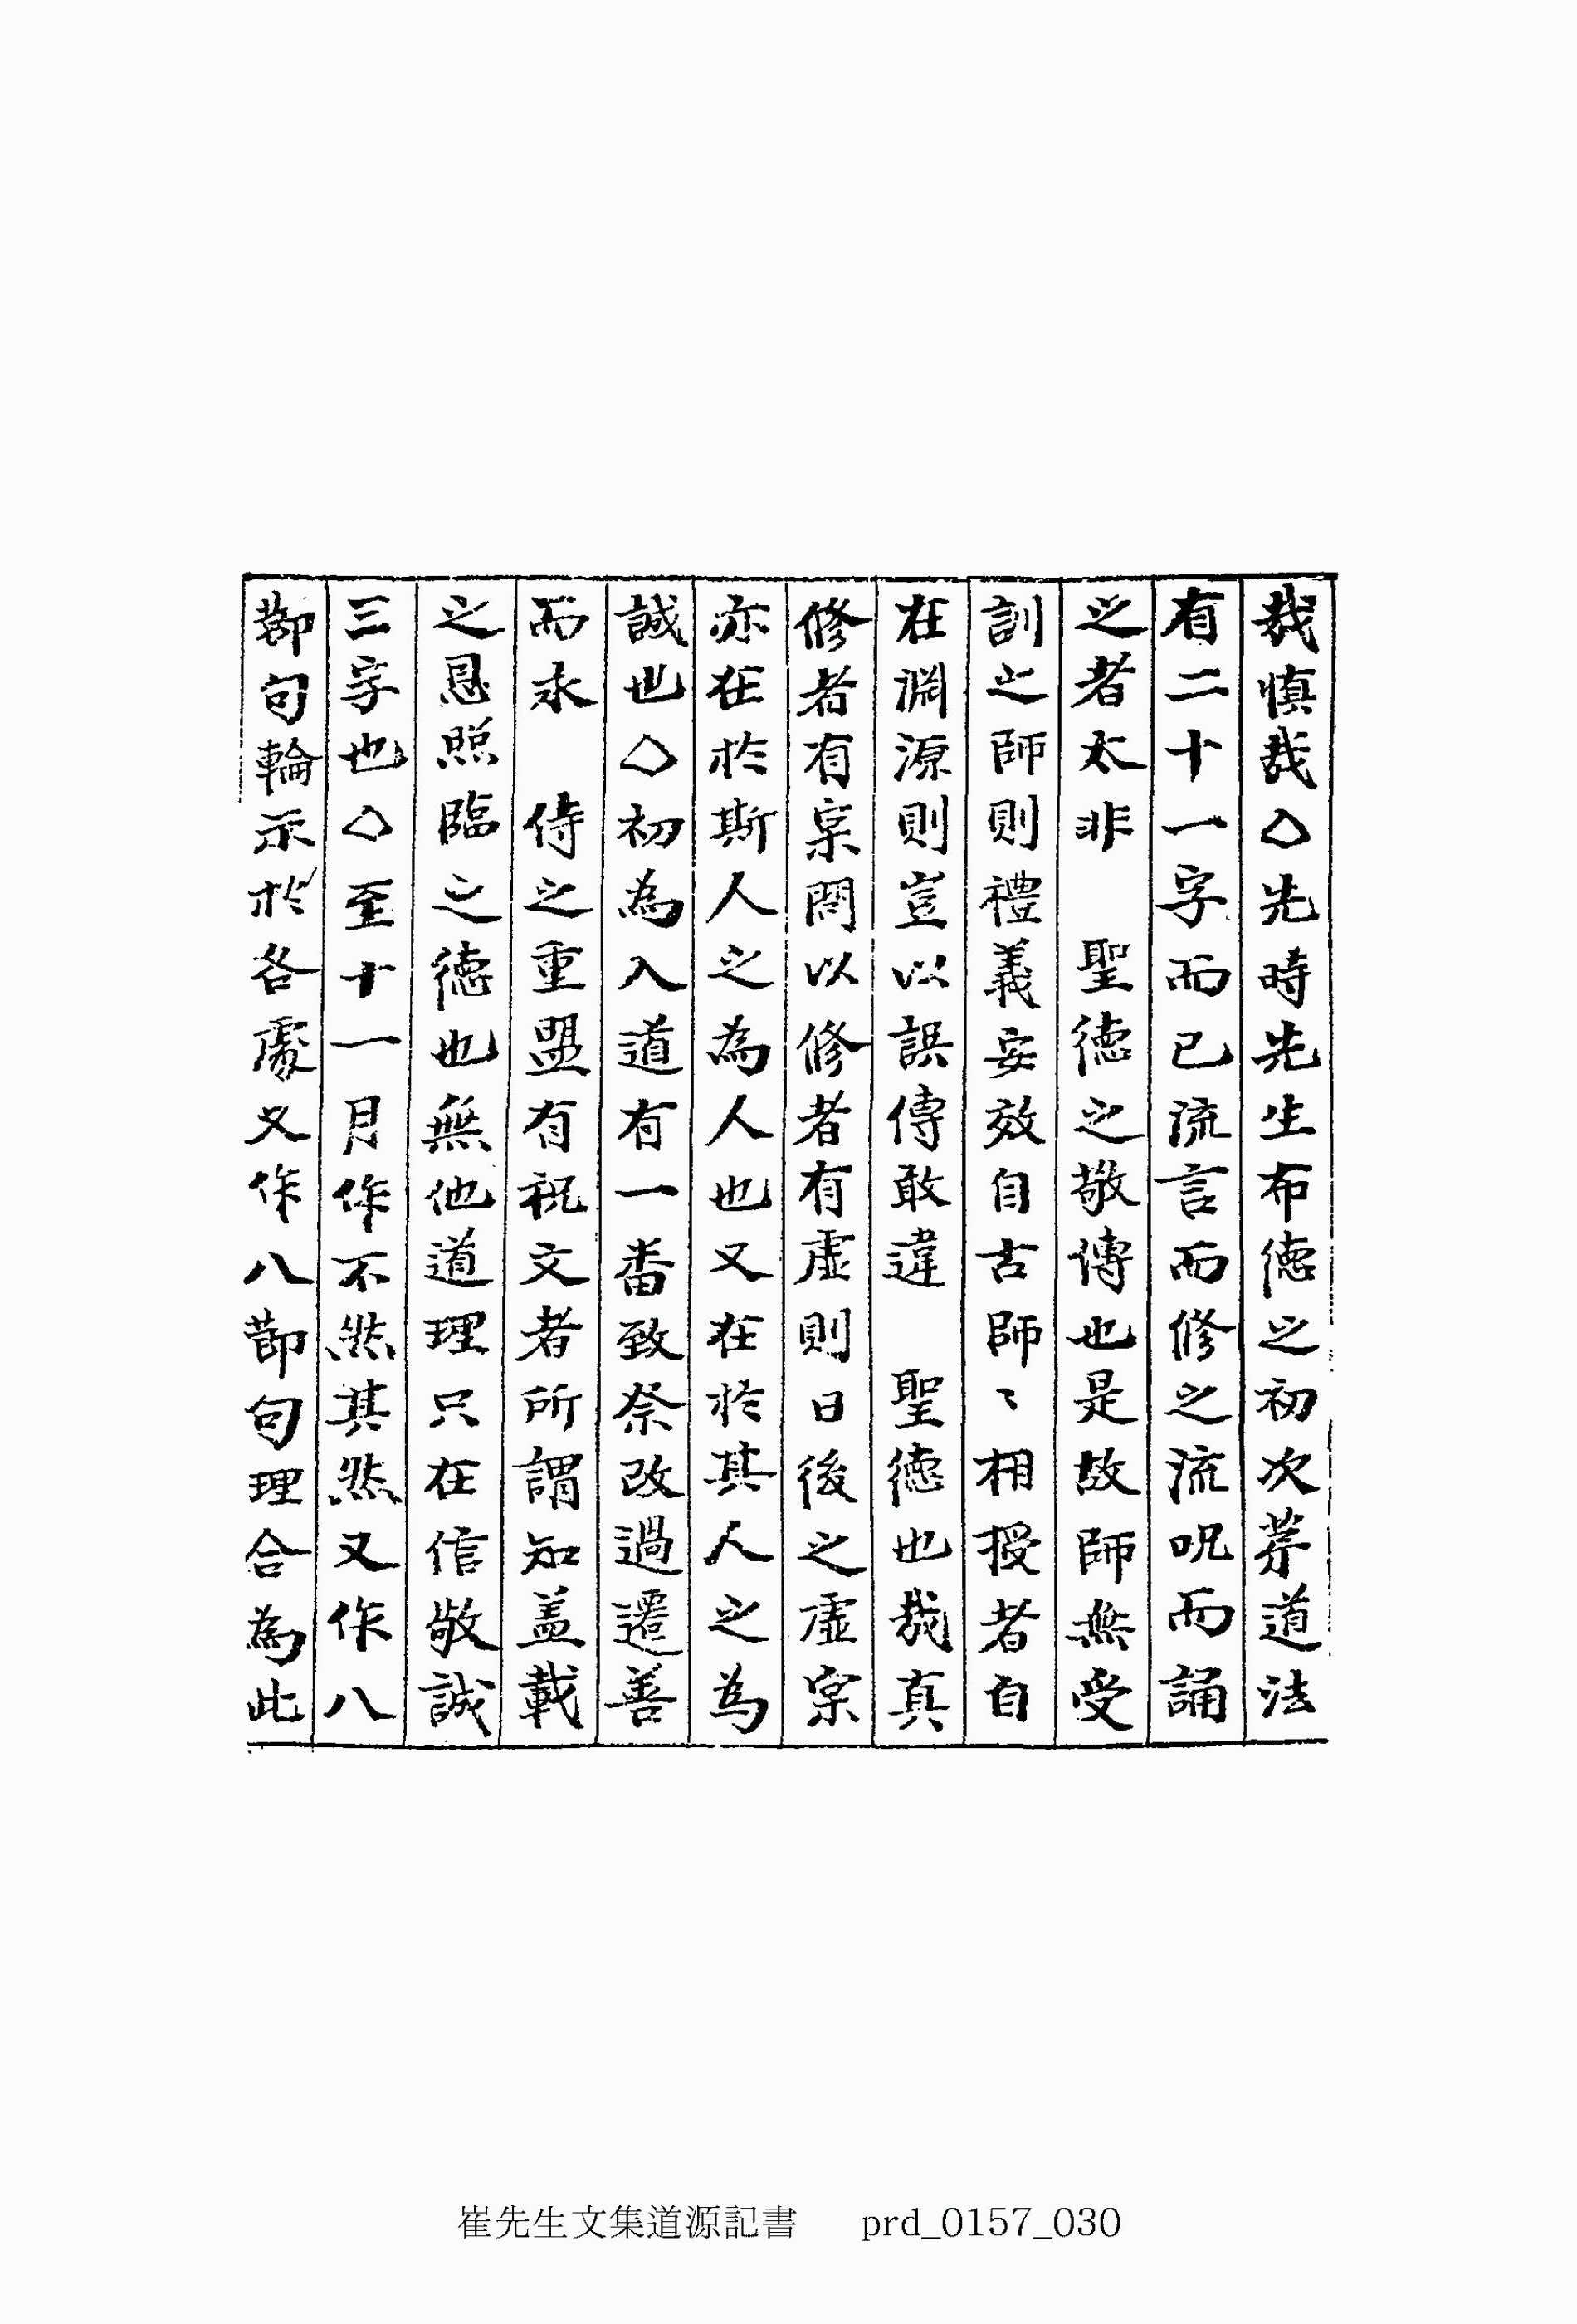 哉慎哉◇先時先生布德之初次第道法
有二十一字而已流言而修之流呪而誦
之者太非　聖德之敬傳也是故師無受
訓之師則禮義安效自古師〻相授者自
在淵源則豈以誤傳敢違　聖德也哉真
修者有宲問以修者有虛則日後之虛宲
亦在於斯人之為人也又在於其人之為
誠也◇初為入道有一番致祭改過遷善
而永　侍之重盟有祝文者所謂知盖載
之恩照臨之德也無他道理只在信敬誠
三字也◇至十一月作不然其然又作八
莭句輪示於各處又作八莭句理合為此
崔先生文集道源記書　prd_0157_030